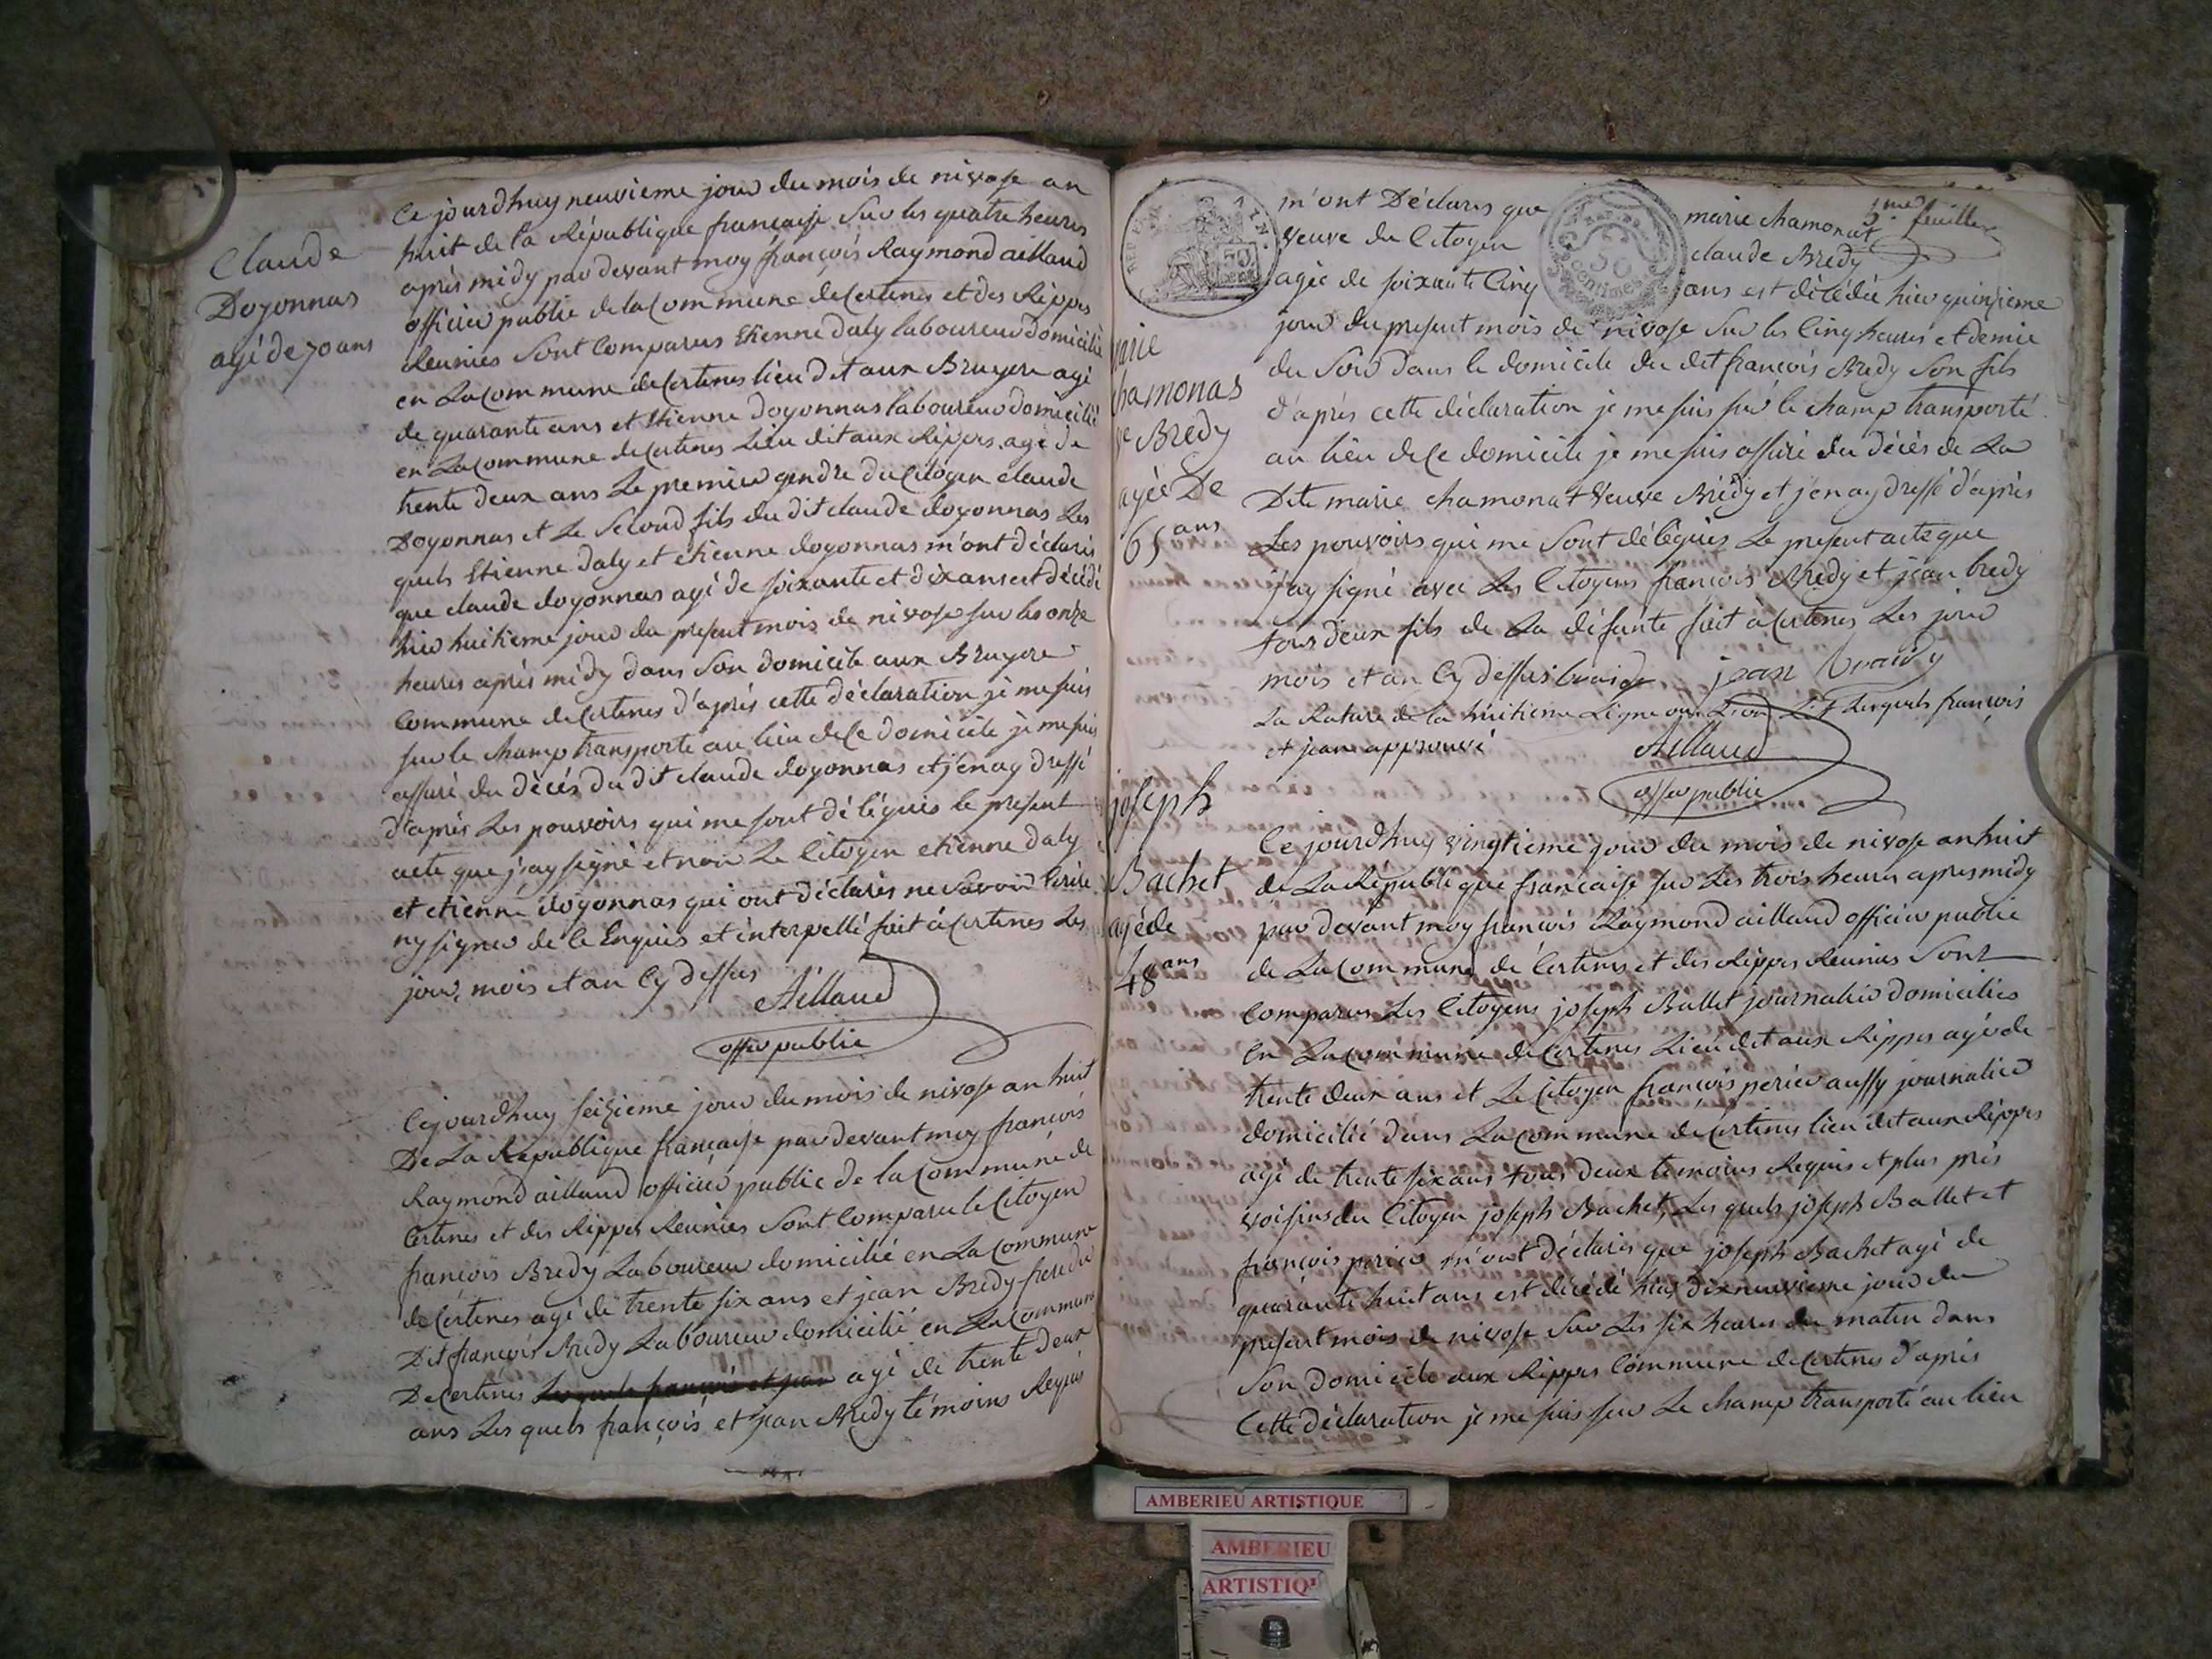 Claude
Doyonnas
agé de 70 ans
Ce jourdhuy neuvieme jour du mois de nivose an
huit de la République française Sur les quatre heures
après midy par devant moy françois Raymond aillaud
officier public de la Commune de Certines et des Rippes
Reunies Sont Comparus Etienne Daly laboureur domicilié
en La Commune de Certines lieu dit aux Bruyere agé
de quarante ans et Etienne Doyonnas laboureur domicilié
en La Commune de Certines Lieu dit aux Rippes agé de
trente deux ans Le premier gendre du Citoyen claude
Doyonnas et Le Second fils du dit claude doyonnas Les
quels Etienne Daly et étienne doyonnas m'ont déclarés
que claude doyonnas agé de soixante et dix ans est décédé
hier huitieme jour du present mois de nivose sur les onze
heures après midy dans Son domicile aux Bruyere
Commune de Certines d'après cette déclaration je me suis
sur le champ transporté au lieu de Ce domicile je me suis
assuré du décès du dit claude doyonnas et j'en ay dressé
d'après Les pouvoirs qui me sont délégués le present
acte que j'ay signé et non Le Citoyen etienne daly
et etienne doyonnas qui ont déclarés ne Savoir Ecrire
ny signer de Ce Enquis et interpellé fait à Certines Les
jour, mois et an Cy dessus
Aillaud
offier public
Cejourdhuy seizieme jour du mois de nivose an huit
De La République française par devant moy françois
Raymond aillaud officier public de la Commune de
Certines et des Rippes Reunies Sont Comparu le Citoyen
françois Bredy Laboureur domicilié en La Commune
de Certines agé de trente six ans et jean Bredy frere du
Dit françois Bredy Laboureur domicilié en La Commune
De Certines Lesquels françois et jean agé de trente deux
ans Les quels françois et jean Bredy témoins Requis
5.me feuillet
m'ont Déclarés que marie chamonat
veuve du Citoyen claude Bredy
agée de soixante Cinq ans est décédée hier quinzieme
jour du present mois de nivose Sur les Cinq heures et demie
du Soir dans le domicile du dit françois Bredy Son fils
d'après cette déclaration je me suis sur le champ transporté
au lieu de Ce domicile je me suis assuré du décès de La
Dite marie chamonat veuve Brédy et j'en ay dressé d'après
Les pouvoirs qui me Sont délégués Le present acte que
j'ay signé avec Les Citoyens françois Bredy et jean bredy
tous deux fils de La défunte fait à Certines Les jour
mois et an Cy dessus jean
La Rature de la huitieme Ligne Lesquels françois
et jean approuvé
Aillaud
offier public
marie
chamonas
ve Bredy
agée De
65 ans
joseph
Bachet
agé de
48 ans
Ce jourdhuy vingtieme jour du mois de nivose an huit
de La République française sur Les trois heures apres midy
par devant moy françois Raymond aillaud officier public
de La Commune de Certines et des Rippes Reunies Sont
Comparus Les Citoyens joseph Ballet journalier domiciliés
en La Commune de Certines Lieu dit aux Rippes agé de
trente deux ans et Le Citoyen françois perier aussy journalier
domicilié dans La Commune de Certines lieu dit aux Rippes
agé de trente six ans tous deux témoins Requis et plus près
voisins du Citoyen joseph Bachet, Les quels joseph Ballet et
françois perier m'ont déclarés que joseph Bachet agé de
quarante huit ans est décédé hier dix neuvieme jour du
present mois de nivose Sur Les six heures du matin dans
Son domicile aux Rippes Commune de Certines d'après
Cette déclaration je me suis sur Le champ transporté au lieu
50
centimes
AMBERIEU ARTISTIQUE
AMBERIEU
ARTISTIQ